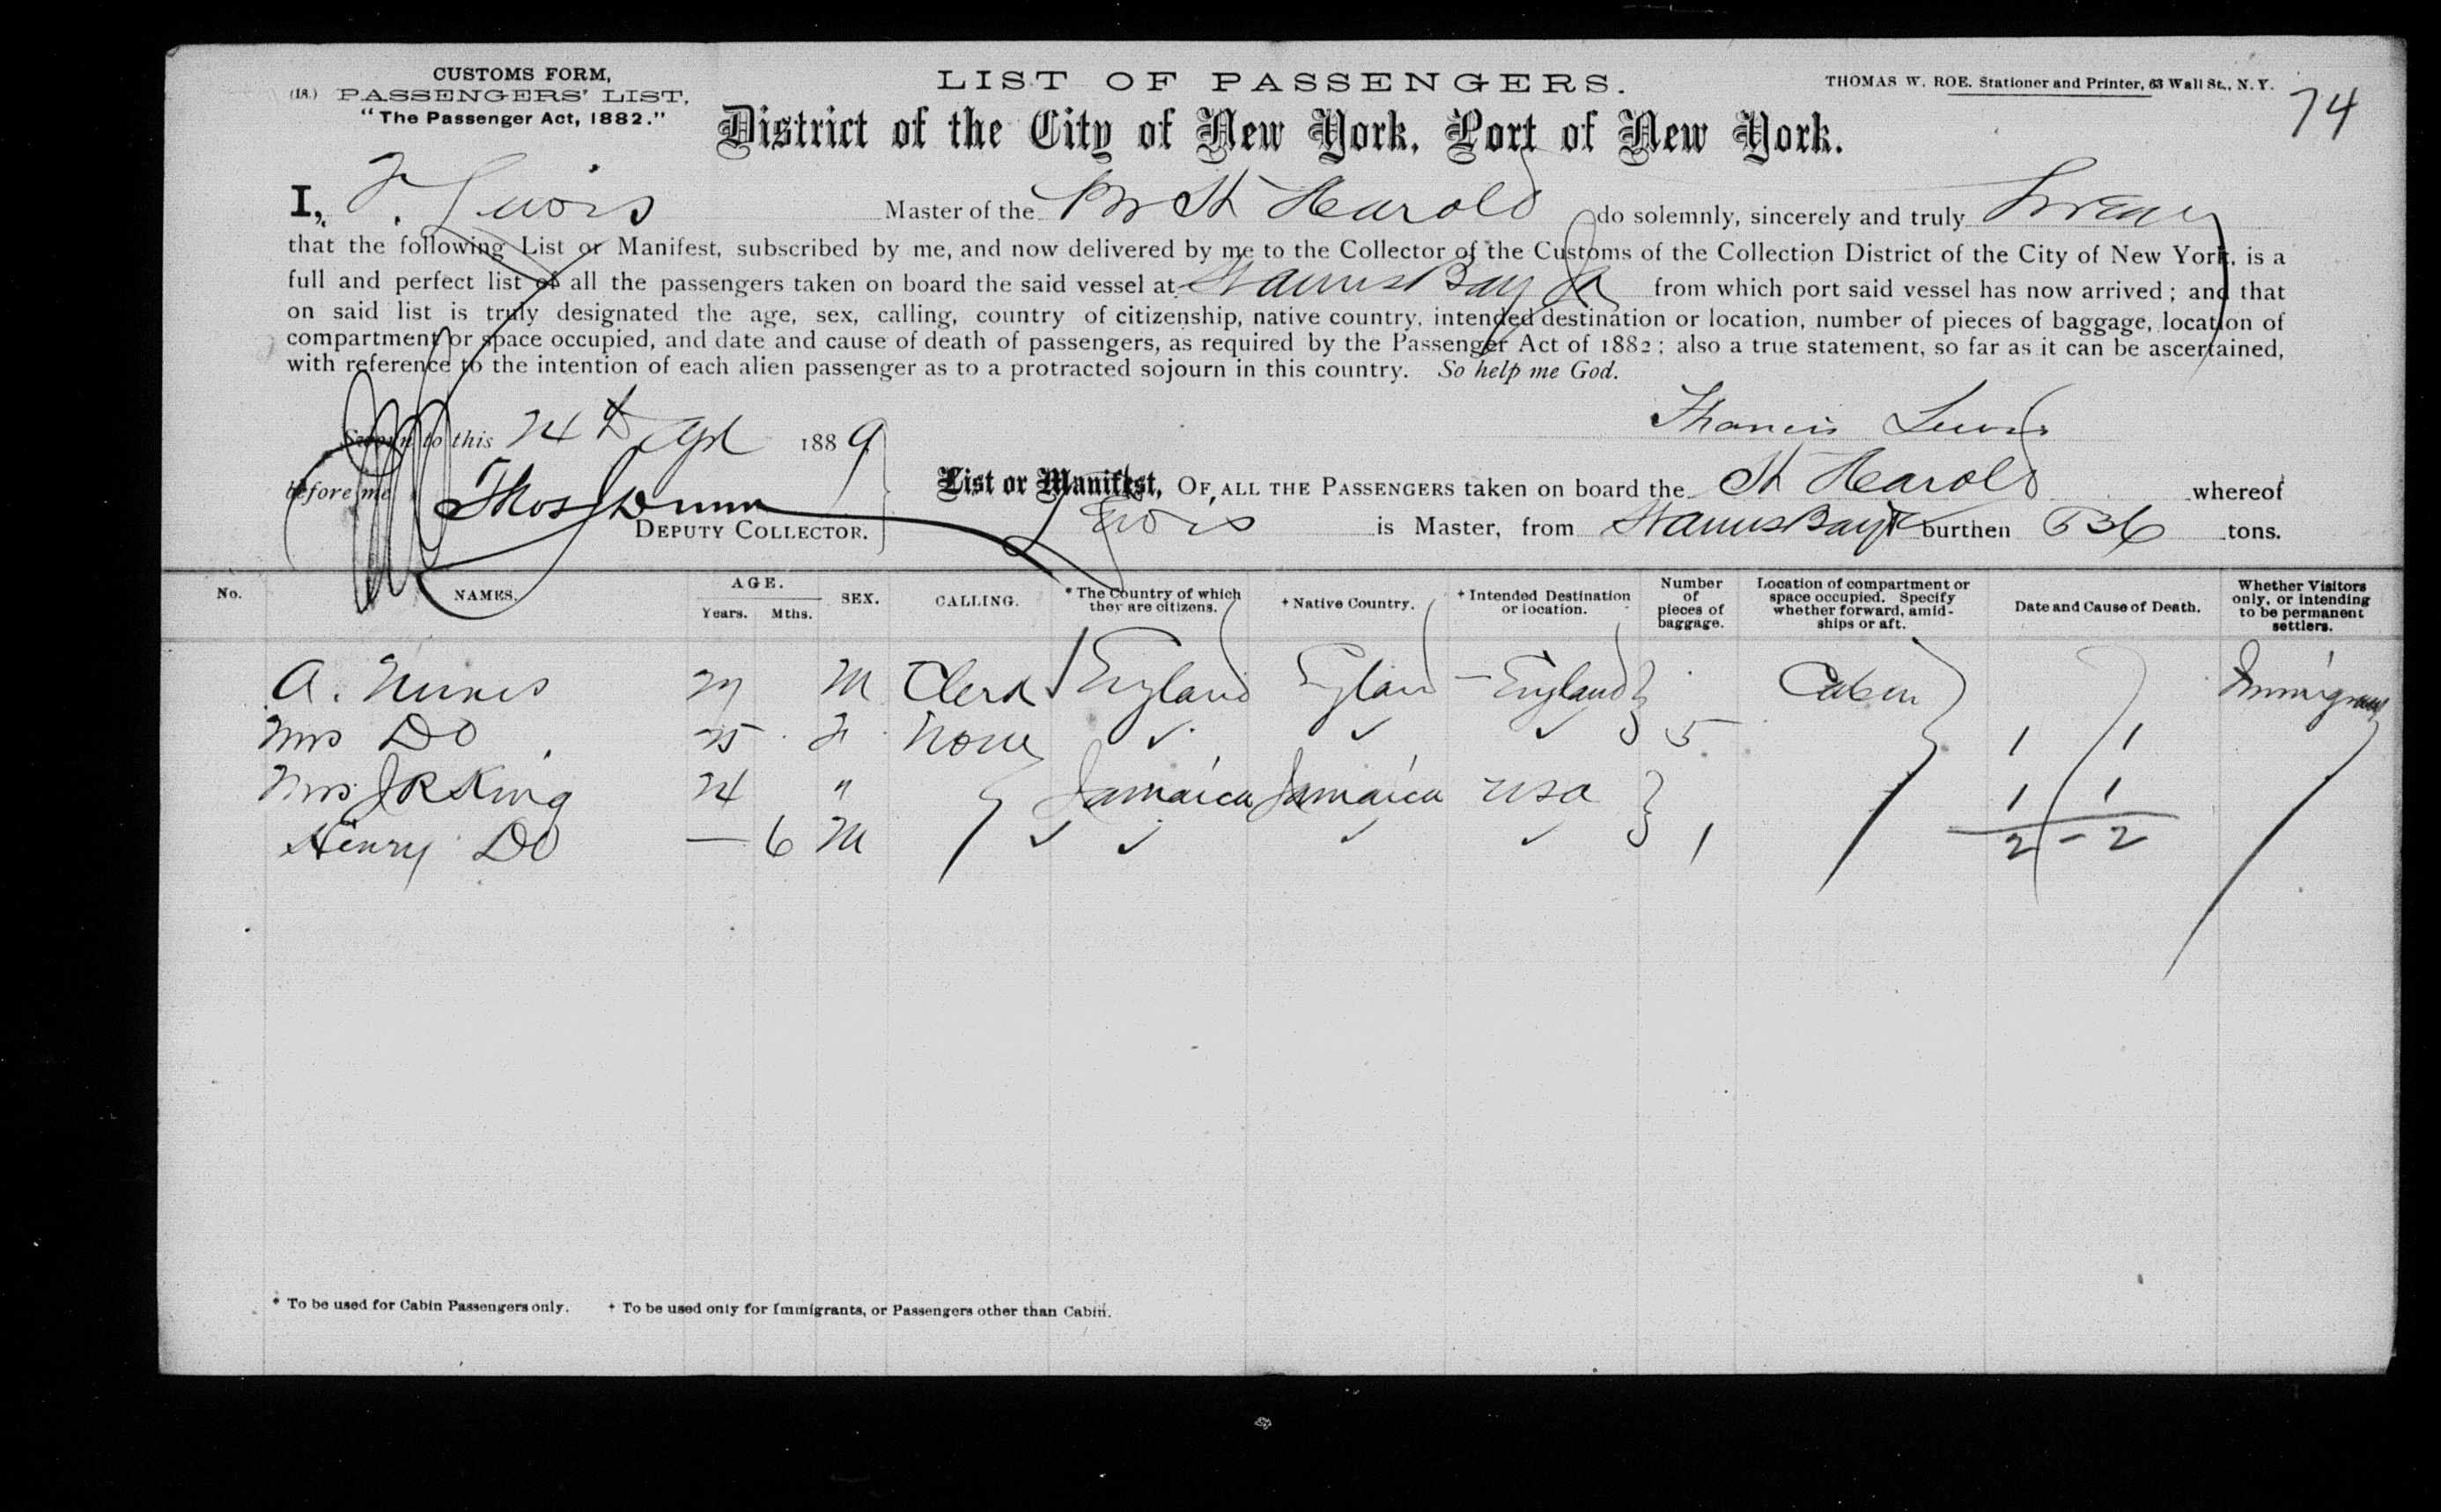 CUSTOMS FORM,
(18.) PASSENGERS' LIST,
"The Passenger Act, 1882."
LIST OF PASSENGERS.
THOMAS W. ROE. Stationer and Printer, 63 Wall St., N. Y.
74
District of the City of New York, Port of New York.
I, F. Lewis Master of the Br St Harold do solemnly, sincerely and truly Swear
that the following List or Manifest, subscribed by me, and now delivered by me to the Collector of the Customs of the Collection District of the City of New York, is a
full and perfect list of all the passengers taken on board the said vessel at Bay Ja from which port said vessel has now arrived; and that
on said list is truly designated the age, sex, calling, country of citizenship, native country, intended destination or location, number of pieces of baggage, location of
compartment or space occupied, and date and cause of death of passengers, as required by the Passenger Act of 1882; also a true statement, so far as it can be ascertained,
with reference to the intention of each alien passenger as to a protracted sojourn in this country. So help me God.
Francis Lewis
Sworn to this 24th 1889
before me Thos Dunn
DEPUTY COLLECTOR.
List or Manifest, OF ALL THE PASSENGERS taken on board the St Harold whereof
Lewis is Master, from Bay burthen 636 tons.
No. NAMES. AGE. Years. Mths. SEX. CALLING. * The Country of which they are citizens. + Native Country. + Intended Destination or location. Number of pieces of baggage. Location of compartment or space occupied. Specify whether forward, amidships or aft. Date and Cause of Death. Whether Visitors only, or intending to be permanent settlers.
A. Nunes 27 M Clerk England England - England Cabin Immigrant
Mrs Do 25 F None ✓ ✓ ✓ 5 1 / 1
Mrs J R King 24 " Jamaica Jamaica USA 1 / 1
Henry Do — 6 M ✓ ✓ ✓ ✓ 1 2 - 2
* To be used for Cabin Passengers only. + To be used only for Immigrants, or Passengers other than Cabin.